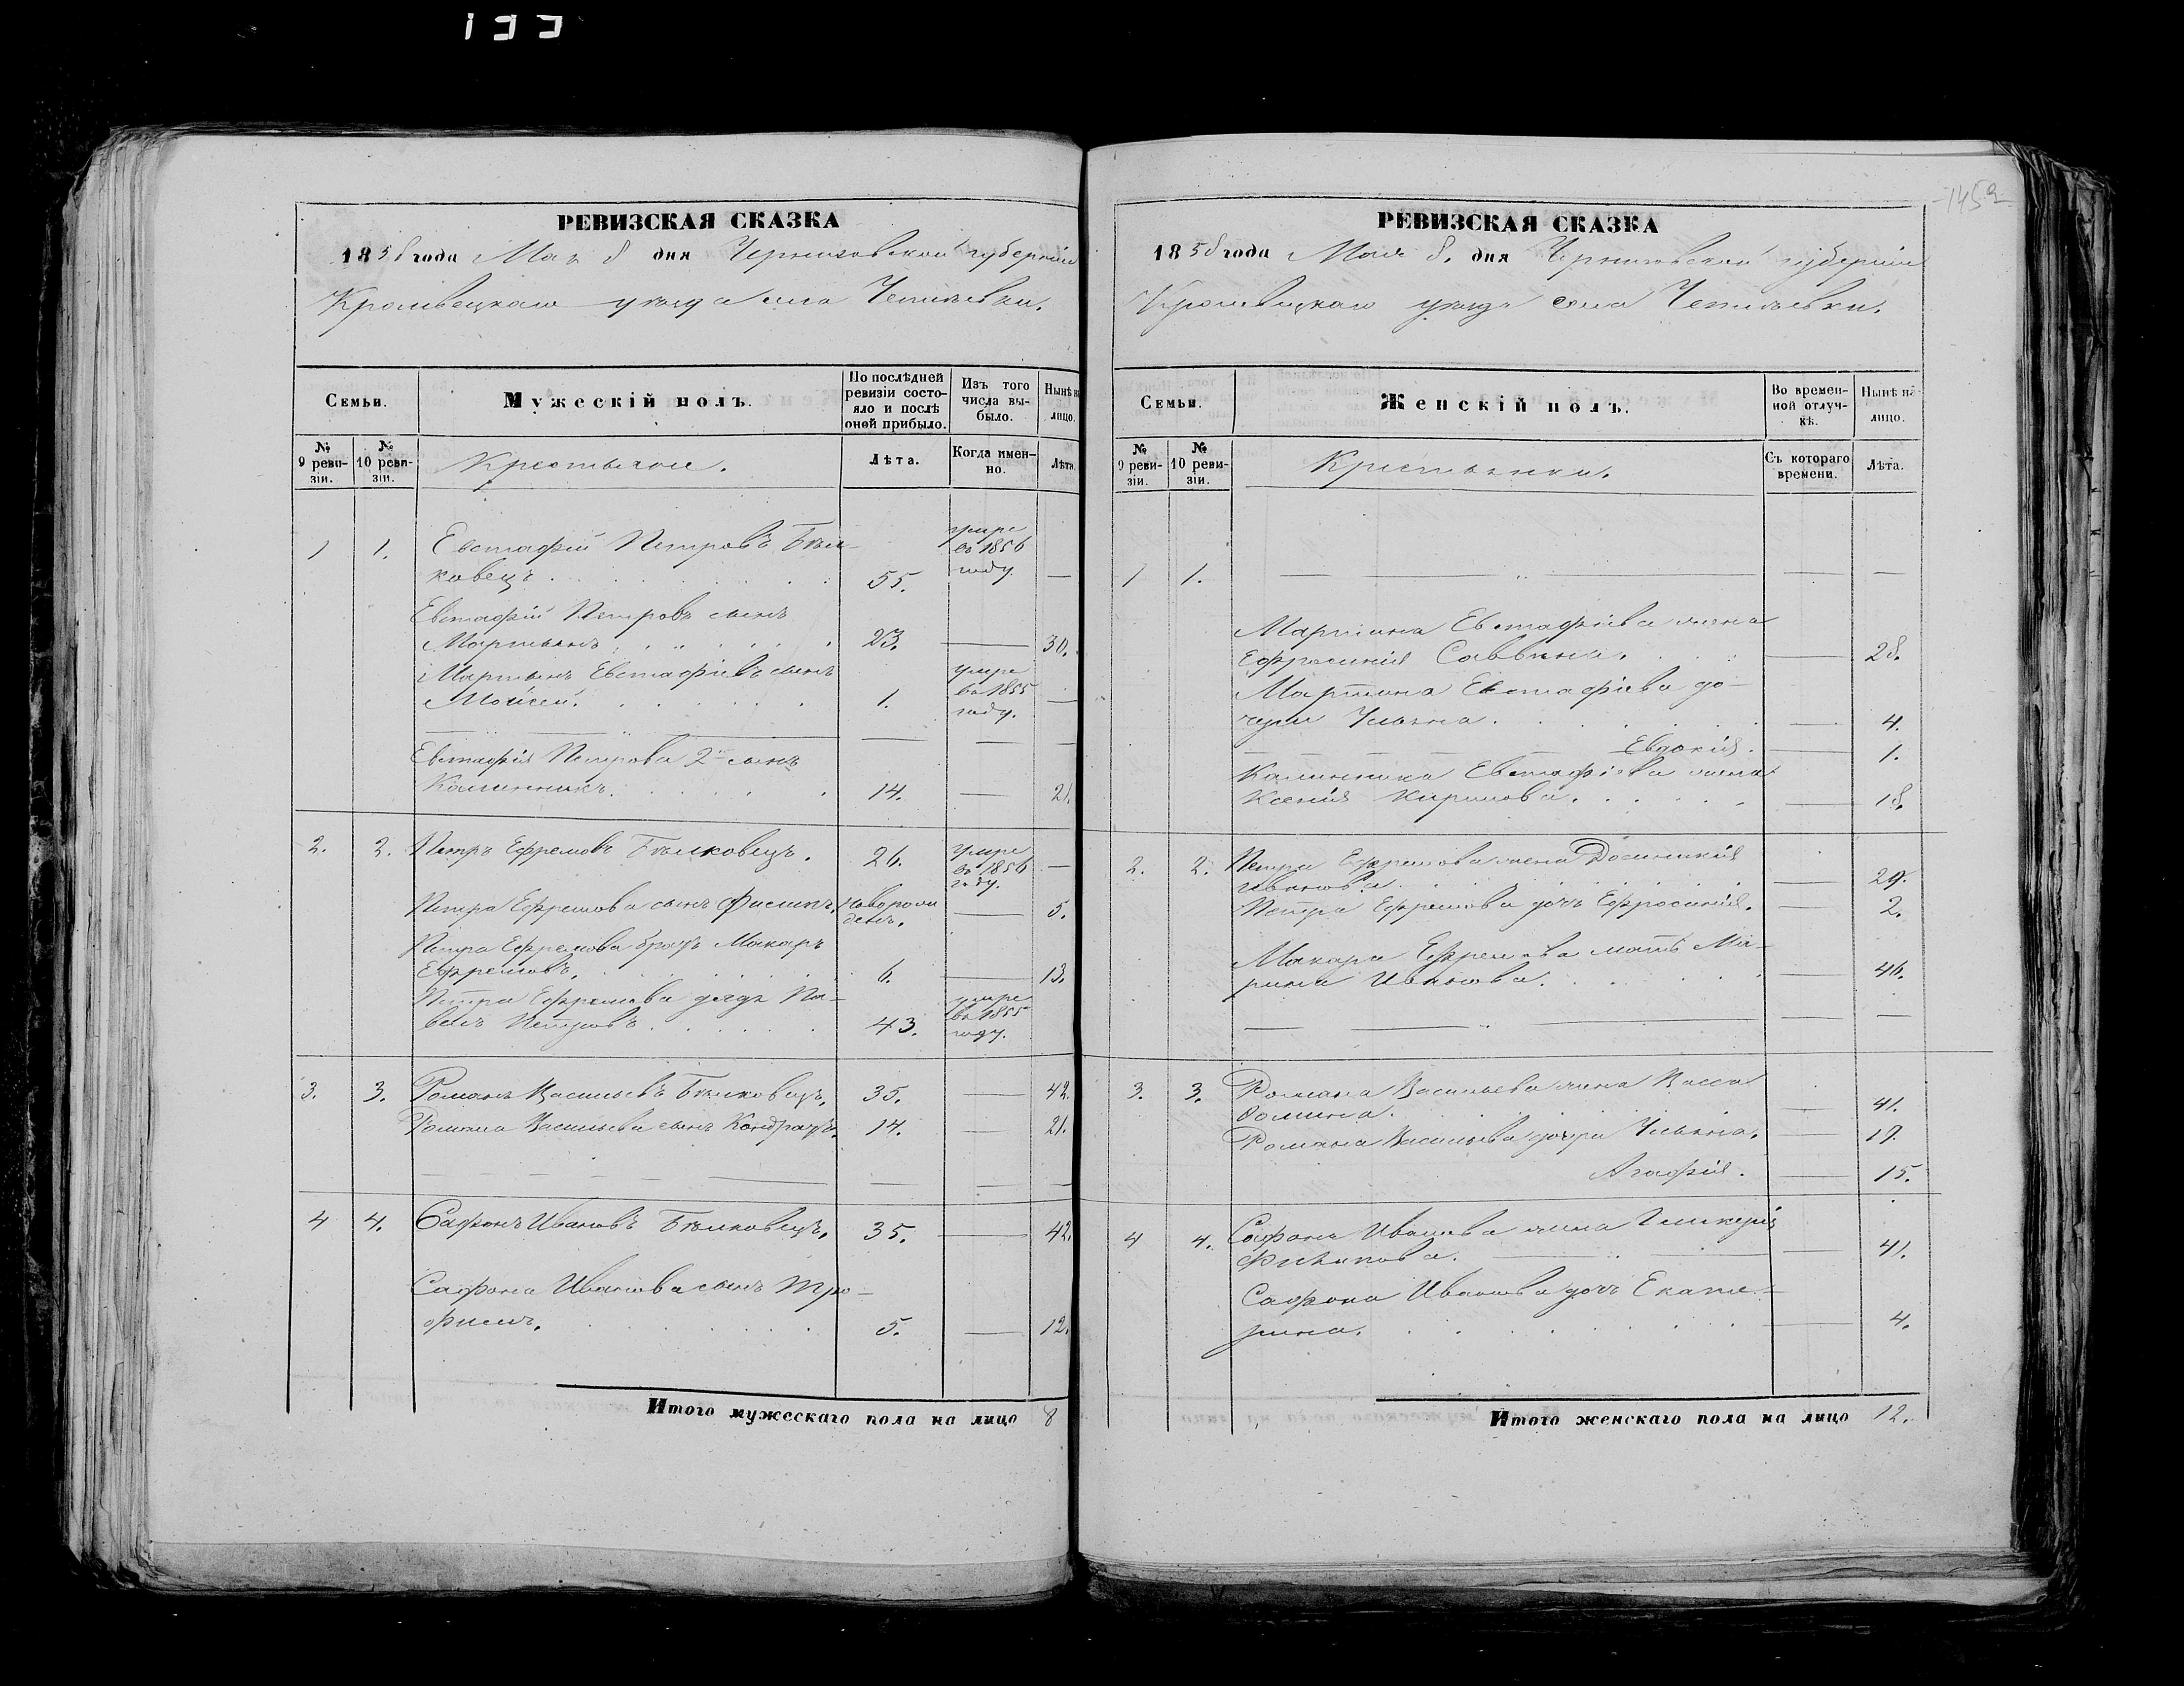 133
РЕВИЗСКАЯ СКАЗКА
1858 года Мая 8 дня Черниговской губерніи
Кролевецкаго уезда села Чепліевки.
Семьи.
Мужескій полъ.
По послѣдней ревизіи состояло и послѣ оной прибыло.
Изъ того числа выбыло.
Нынѣ на лицо.
№ 9 ревизіи.
№ 10 ревизіи.
Крестьяне.
Лѣта.
Когда именно.
Лѣта
1 1. Евстафій Петровъ Бѣл-
ковецъ. 55. умре въ 1856 году. —
Евстафій Петровъ сынъ
Мартынъ 23. — 30.
Мартынъ Евстафіевъ сынъ
Мойсей. 1. умре въ 1855 году. —
Евстафія Петрова 2й сынъ
Калинникъ. 14. — 21.
2. 2. Петръ Ефремовъ Бѣлковецъ. 26. умре въ 1856 году. —
Петра Ефремова сынъ Филипъ. новорожденъ. — 5.
Петра Ефремова братъ Макаръ
Ефремовъ. 6. — 13.
Петра Ефремова дядя Па-
велъ Петровъ 43. умре въ 1855 году.
3. 3. Романъ Васильевъ Бѣлковецъ. 35. — 42.
Романа Васильева сынъ Кондратъ. 14. — 21.
4 4. Сафонъ Ивановъ Бѣлковецъ. 35. — 42.
Сафона Иванова сынъ Тро-
фимъ. 5. — 12.
Итого мужескаго пола на лицо 8
145
РЕВИЗСКАЯ СКАЗКА
1858 года Мая 8. дня Черниговской губерніи
Кролевецкаго уезда села Чепліевки.
Семьи.
Женскій полъ.
Во временной отлучкѣ.
Нынѣ на лицо.
№ 9 ревизіи.
№ 10 ревизіи.
Крестьянки.
Съ котораго времени.
Лѣта.
1 1. — — —
Мартина Евстафіева жена
Ефросинія Саввина. — 28.
Мартина Евстафіева до-
чери Ульяна. — 4.
Евдокія. — 1.
Калинника Евстафіева жена
Ксенія Кирилова. — 18.
2. 2. Петра Ефремова жена Досиникія
Иванова. — 29.
Петра Ефремова дочь Ефросинія. — 2.
Макара Ефремова мать Ма-
рина Иванова. — 46.
3. 3. Романа Васильева жена Васса
Фомина. — 41.
Романа Васильева дочери Ульяна. — 19.
Агафія. — 15.
4 4. Сафона Иванова жена Гликерія
Филипова. — 41.
Сафона Иванова дочь Екате-
рина. — 4.
Итого женскаго пола на лицо 12.